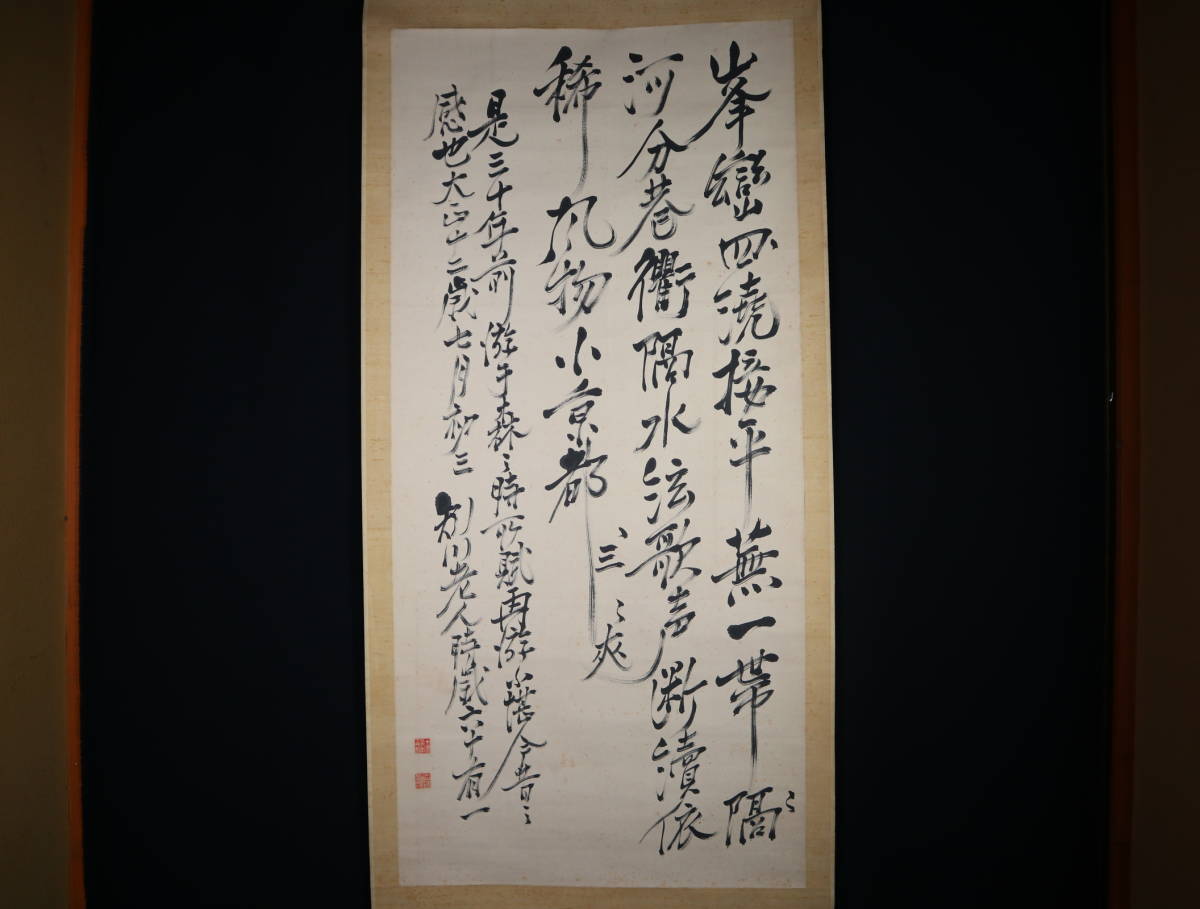 峯巒四繞接平蕪一帯隔ミ
河分巷衢隔水絃歌声断續依
稀風物小京都
、三ミ夾
是三十年前游于森ミ時所賦再游不堪今昔ミ
感也大正十二歳七月初三 川老人時歳六十有一